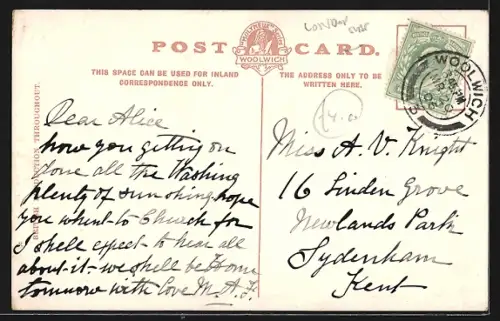 LONDON
POST CARD.
WOOLWICH
THIS SPACE CAN BE USED FOR INLAND
CORRESPONDENCE ONLY.
THE ADDRESS ONLY TO BE
WRITTEN HERE.
WOOLWICH
Dear Alice
how you getting on
done all the Washing
plenty of sunshing hope
you whent to Church for
I shell expect to hear all
about-it- we shell be Home
tomorow with Love M.A.
Miss A. V. Knight
16 Linden Grove
Newlands Park
Sydenham
Kent